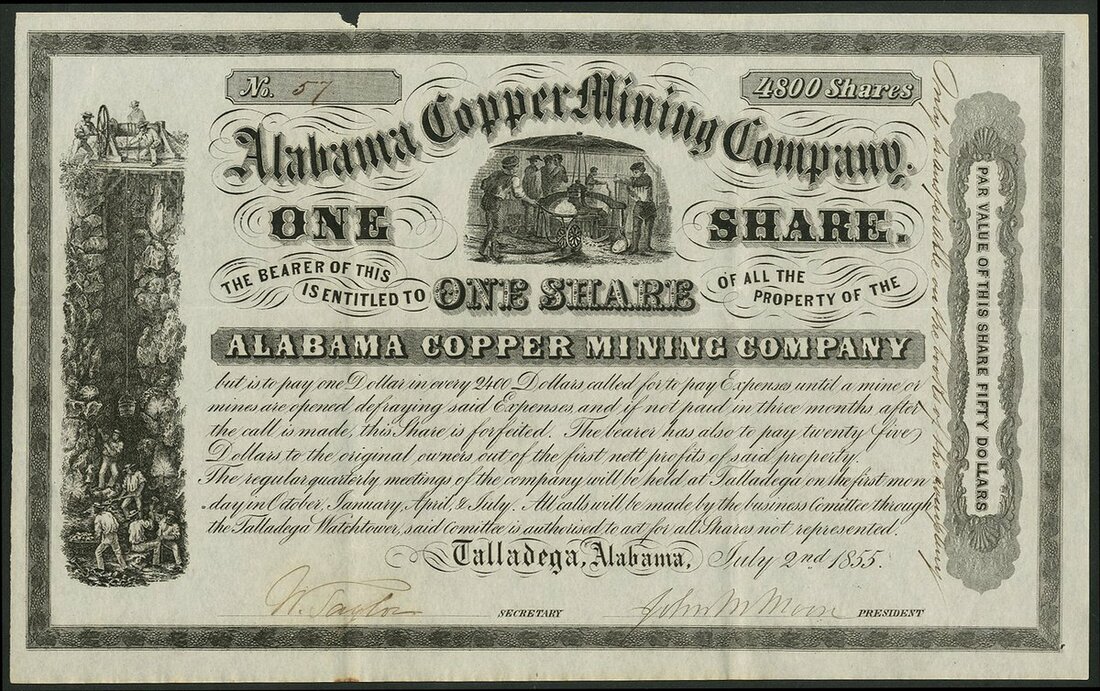 No. 57
4800 Shares
Alabama Copper Mining Company.
ONE SHARE.
THE BEARER OF THIS
IS ENTITLED TO
ONE SHARE
OF ALL THE
PROPERTY OF THE
ALABAMA COPPER MINING COMPANY
but is to pay one Dollar in every 2400 Dollars called for to pay Expenses until a mine or
mines are opened defraying said Expenses, and if not paid in three months after
the call is made, this Share is forfeited. The bearer has also to pay twenty five
Dollars to the original owners out of the first nett profits of said property.
The regular quarterly meetings of the company will be held at Talladega on the first mon
day in October, January, April & July. All calls will be made by the business Comittee through
the Talladega Watchtower, said Comittee is authorised to act for all Shares not represented.
Talladega, Alabama, July 2nd 1855.
W. Taylor SECRETARY
John M Moon PRESIDENT
Only transferable on the books of the company
PAR VALUE OF THIS SHARE FIFTY DOLLARS